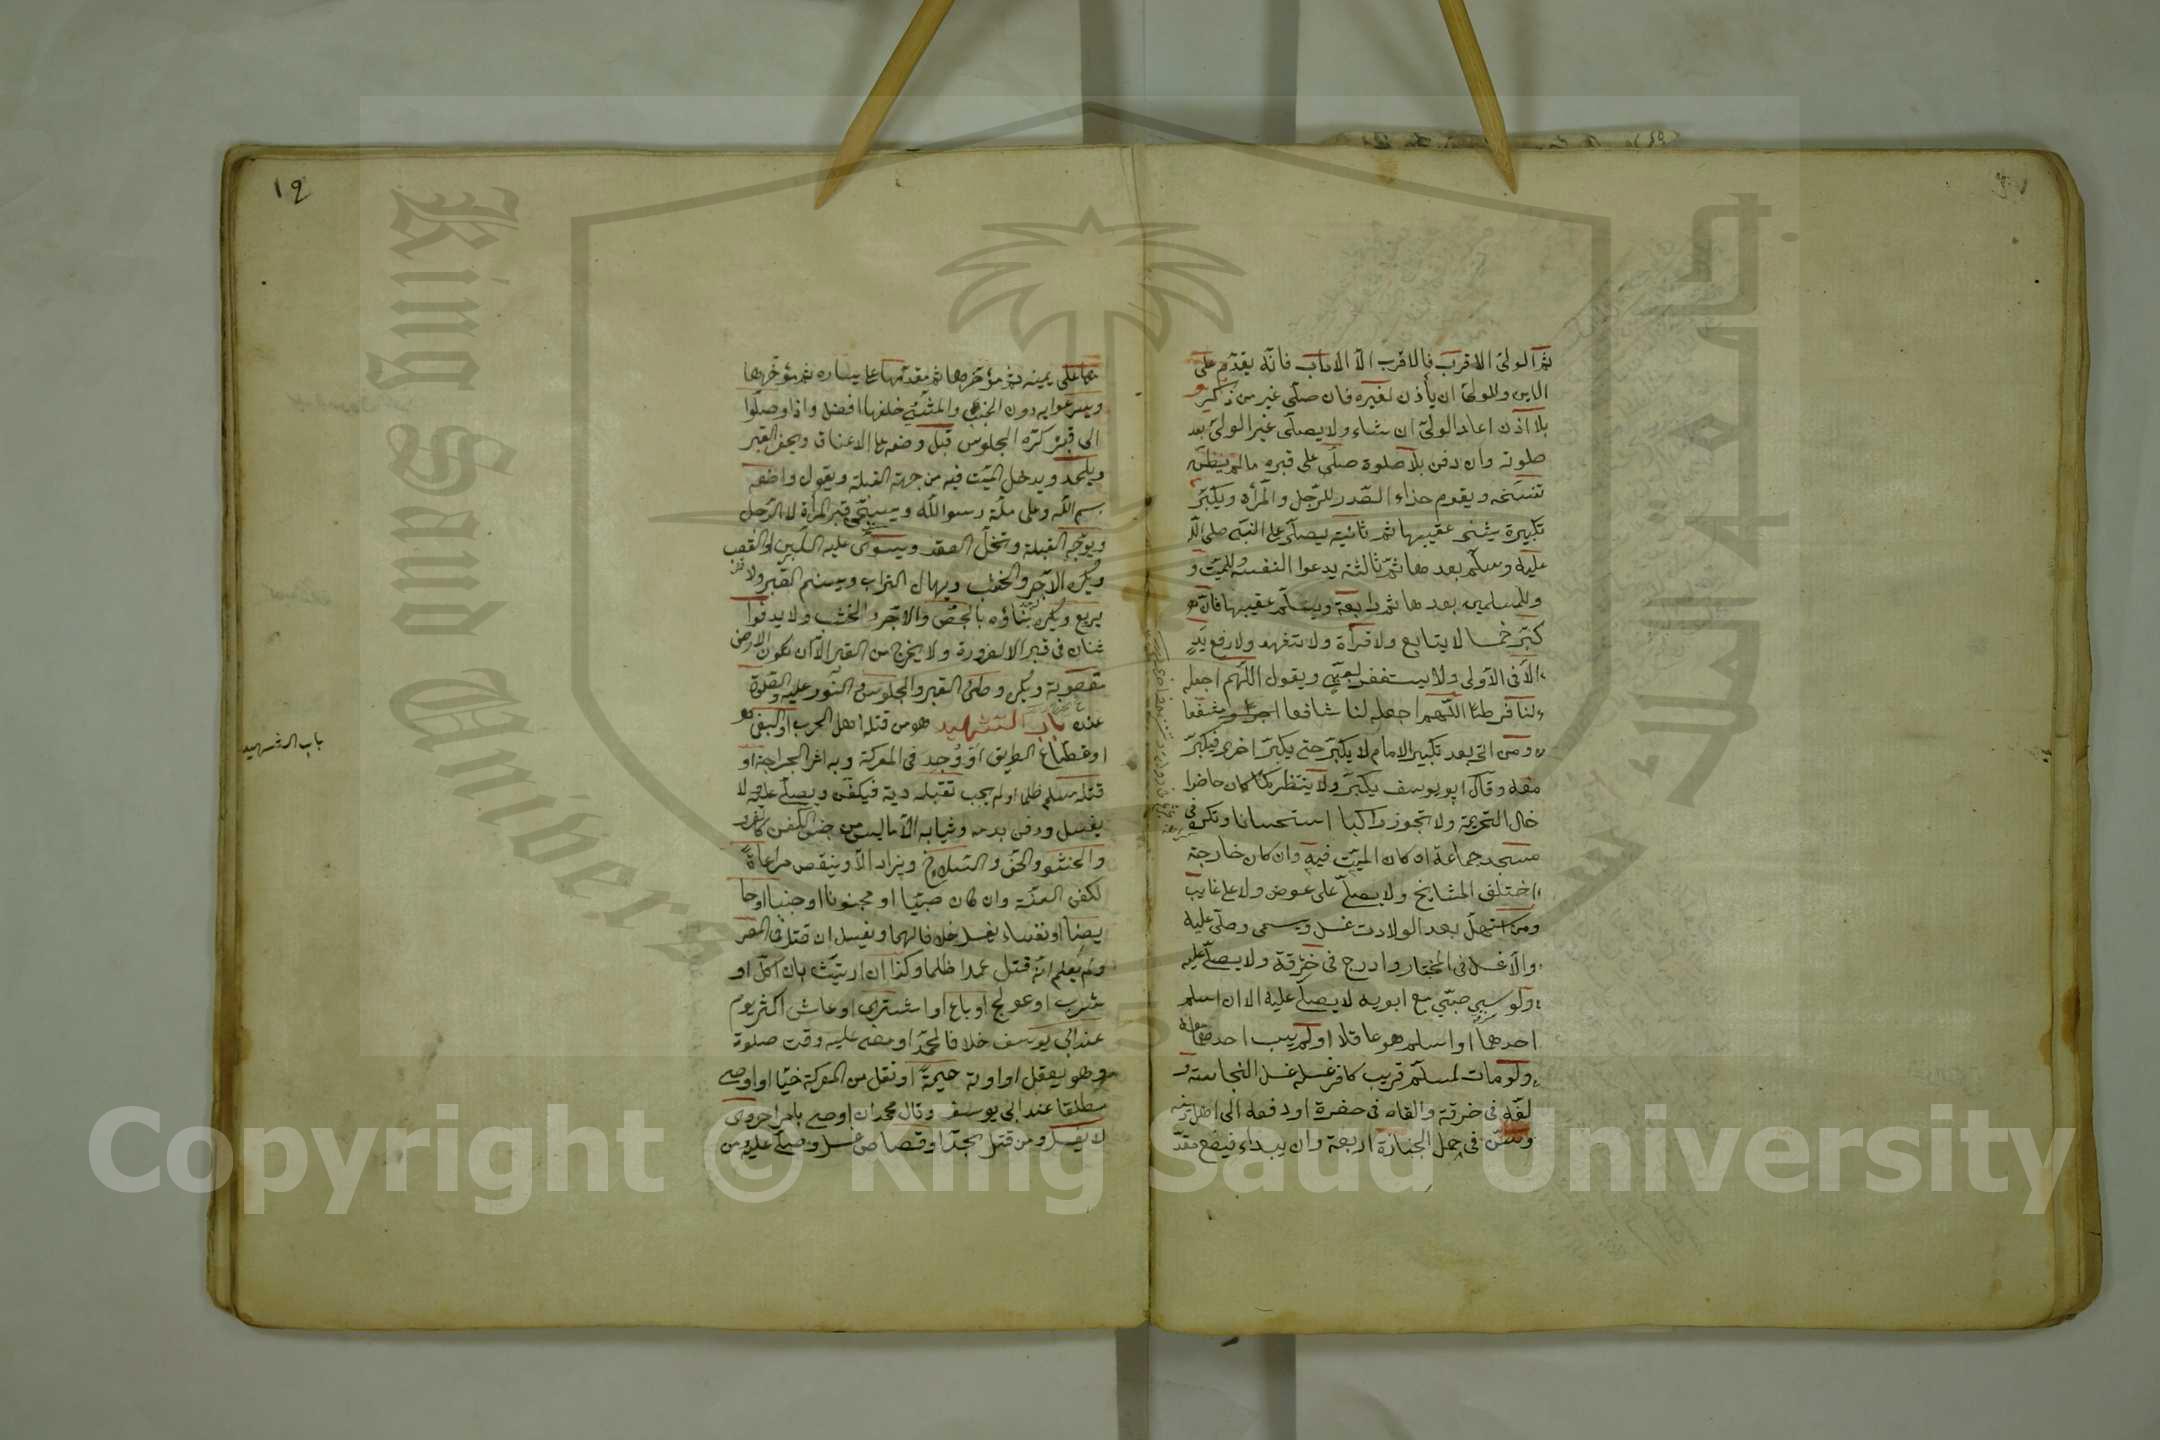 ثم الولى الاقرب فالاقرب الا الاباب فانه يقدم على
الابن وللولى ان يأذن لغيره فان صلى غير من ذكر
بلا اذن اعاد الولى ان شاء ولا يصلى غير الولى بعد
صلوته وان دفن بلا صلوة صلى على قبره مالم يظن
تفسخه ويقوم حذاء الصدر للرجل والمرأة ويكبر
تكبيرة يثنى عقيبها ثم ثانية يصلى على النبى صلى الله
عليه وسلم بعدها ثم ثالثة يدعوا لنفسه وللميت و
وللمسلمين بعدها ثم رابعة ويسلم عقيبها فان
كبر خمسا لا يتابع ولا قراءة ولا تشهد ولا رفع يد
الا فى الاولى ولا يستغفر لصبى ويقول اللهم اجعله
لنا فرطا اللهم اجعله لنا شافعا مشفعا
ومن اتى بعد تكبير الامام لا يكبر حتى يكبر اخرى فيكبر
معه وقال ابو يوسف يكبر ولا ينتظر كمن كان حاضرا
حال التحريمة ولا تجوز راكبا استحسانا وتكره فى
مسجد جماعة ان كان الميت فيه وان كان خارجة
اختلف المشايخ ولا يصلى على عضو ولا على غايب
ومن استهل بعد الولادت غسل وسمى وصلى عليه
والا غسل فى المختار وادرج فى خرقة ولا يصلى عليه
ولو سبى صبى مع ابويه لا يصلى عليه الا ان اسلم
احدهما او اسلم هو عاقلا او لم يسب احدهما معه
ولو مات لمسلم قريب كافر غسله غسل النجاسة و
لفه فى خرقة والقاه فى حفرة او دفعه الى اهل دينه
وسن فى حمل الجنازة اربعة وان يبداء فيضع مقد
مها على يمينه ثم مؤخرها ثم مقدمها على يساره ثم مؤخرها
ويسرعوا به دون الخبب والمشى خلفها افضل واذا وصلوا
الى قبره كره الجلوس قبل وضعه على الاعناق ويحفر القبر
ويلحد ويدخل الميت فيه من جهة القبلة ويقول واضعه
بسم الله وعلى ملة رسوا الله ويسجى قبر المرأة لا الرجل
ويوجه القبلة وتحل العقد ويسوى عليه اللبن او القصب
ويكره الآجر والخشب ويهال التراب ويسنم القبر ولا
يربع ويكره بناؤه بالجص والآجر والخشب ولا يدفوا
ثنان فى قبر الا لضرورة ولا يخرج من القبر الا ان تكون الارض
مغصوبة ويكره وطئ القبر والجلوس والنوم عليه والصلوة
عنده باب الشهيد هو من قتله اهل الحرب او البغى
او قطاع الطريق او وجد فى المعركة وبه اثر الجراحة او
قتله مسلم ظلما ولم يجب بقتله دية فيكفن ويصلى عليه ولا
يغسل ودفن بدمه وثيابه الا ما ليس من جنس الكفن كالفرو
والحشو والخف والسلاح ويزاد او ينقص مراعاة
لكفن السنة وان كان صبيا او مجنونا او جنبا او حا
يضا او نفساء يغسل خلافا لهما ويغسل ان قتل فى المصر
ولم يعلم انه قتل عمدا ظلما وكذا ان ارتث بان اكل او
شرب او عولج او باع او اشترى او عاش اكثر يوم
عند ابى يوسف خلافا لمحمد او مضى عليه وقت صلوة
وهو يعقل او اوته خيمة او نقل من المعركة حيا او اوصى
مطلقا عند ابى يوسف وقال محمد ان اوصى بامر اخروى
لا يغسل ومن قتل بحد او قصاص غسل وصلى عليه ومن
باب الشهيد
Copyright © King Saud University
King Saud University